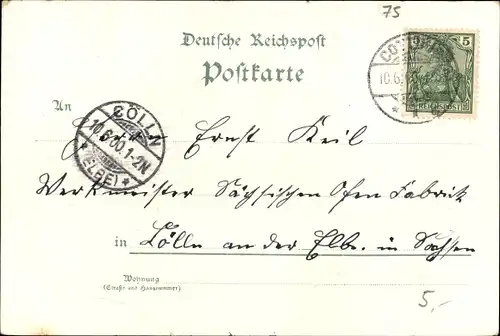 75
Deutsche Reichspost
Postkarte
5
REICHSPOST
10.6.
An
CÖLLN
10.6.00.1-2N
(ELBE)
Herrn Ernst Keil
Werkmeister Sächsischen Ofen Fabrick
in Cölln an der Elbe. in Sachsen
Wohnung
(Straße und Hausnummer)
5,-